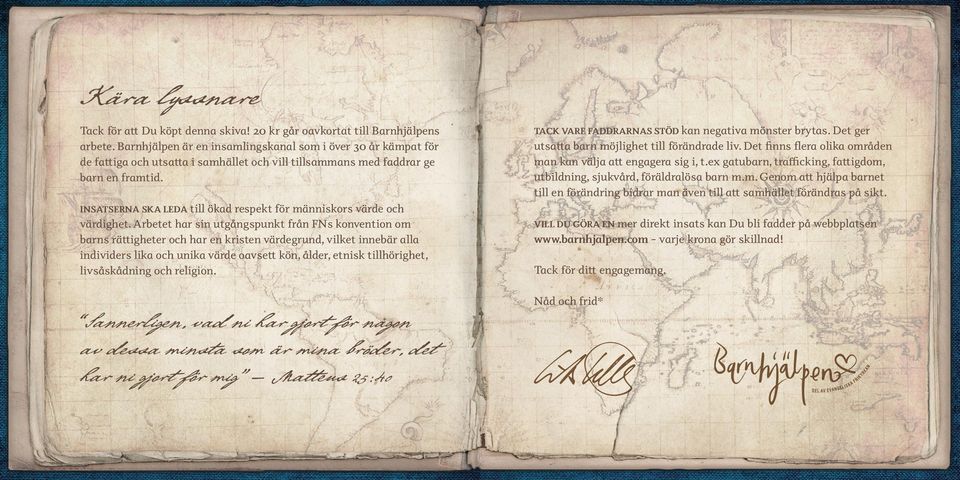 Kära lyssnare
Tack för att Du köpt denna skiva! 20 kr går oavkortat till Barnhjälpens
arbete. Barnhjälpen är en insamlingskanal som i över 30 år kämpat för
de fattiga och utsatta i samhället och vill tillsammans med faddrar ge
barn en framtid.
INSATSERNA SKA LEDA till ökad respekt för människors värde och
värdighet. Arbetet har sin utgångspunkt från FNs konvention om
barns rättigheter och har en kristen värdegrund, vilket innebär alla
individers lika och unika värde oavsett kön, ålder, etnisk tillhörighet,
livsåskådning och religion.
"Sannerligen, vad ni har gjort för någon
av dessa minsta som är mina bröder, det
har ni gjort för mig" – Matteus 25:40
TACK VARE FADDRARNAS STÖD kan negativa mönster brytas. Det ger
utsatta barn möjlighet till förändrade liv. Det finns flera olika områden
man kan välja att engagera sig i, t.ex gatubarn, trafficking, fattigdom,
utbildning, sjukvård, föräldralösa barn m.m. Genom att hjälpa barnet
till en förändring bidrar man även till att samhället förändras på sikt.
VILL DU GÖRA EN mer direkt insats kan Du bli fadder på webbplatsen
www.barnhjalpen.com – varje krona gör skillnad!
Tack för ditt engagemang.
Nåd och frid*
Barnhjälpen
DEL AV EVANGELISKA FRIKYRKAN